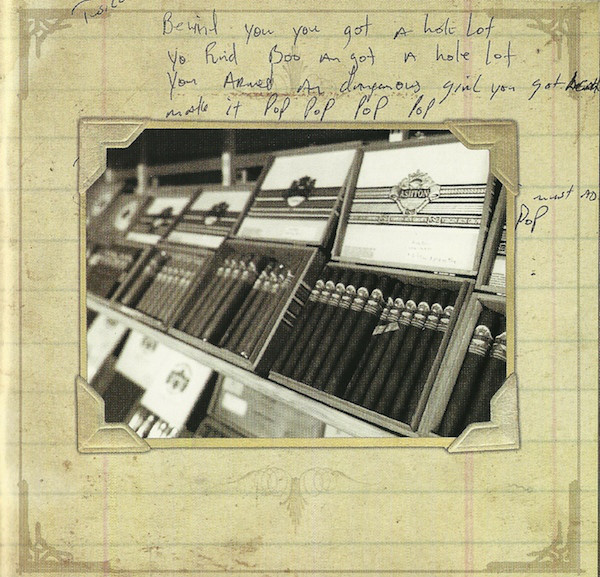 Behind you you got a hole lot
yo Friend Boo an got a hole lot
You Armed An dangerous girl you got
make it Pop Pop Pop Pop
must AD
Pop
ASHTON